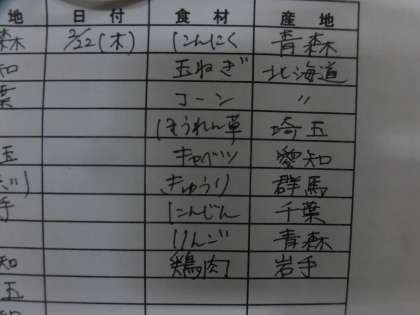 地 日付 食材 産地
森 2/22(木) にんにく 青森
知 玉ねぎ 北海道
葉 コーン 〃
ほうれん草 埼玉
玉 キャベツ 愛知
きゅうり 群馬
手 にんじん 千葉
りんご 青森
知 鶏肉 岩手
玉